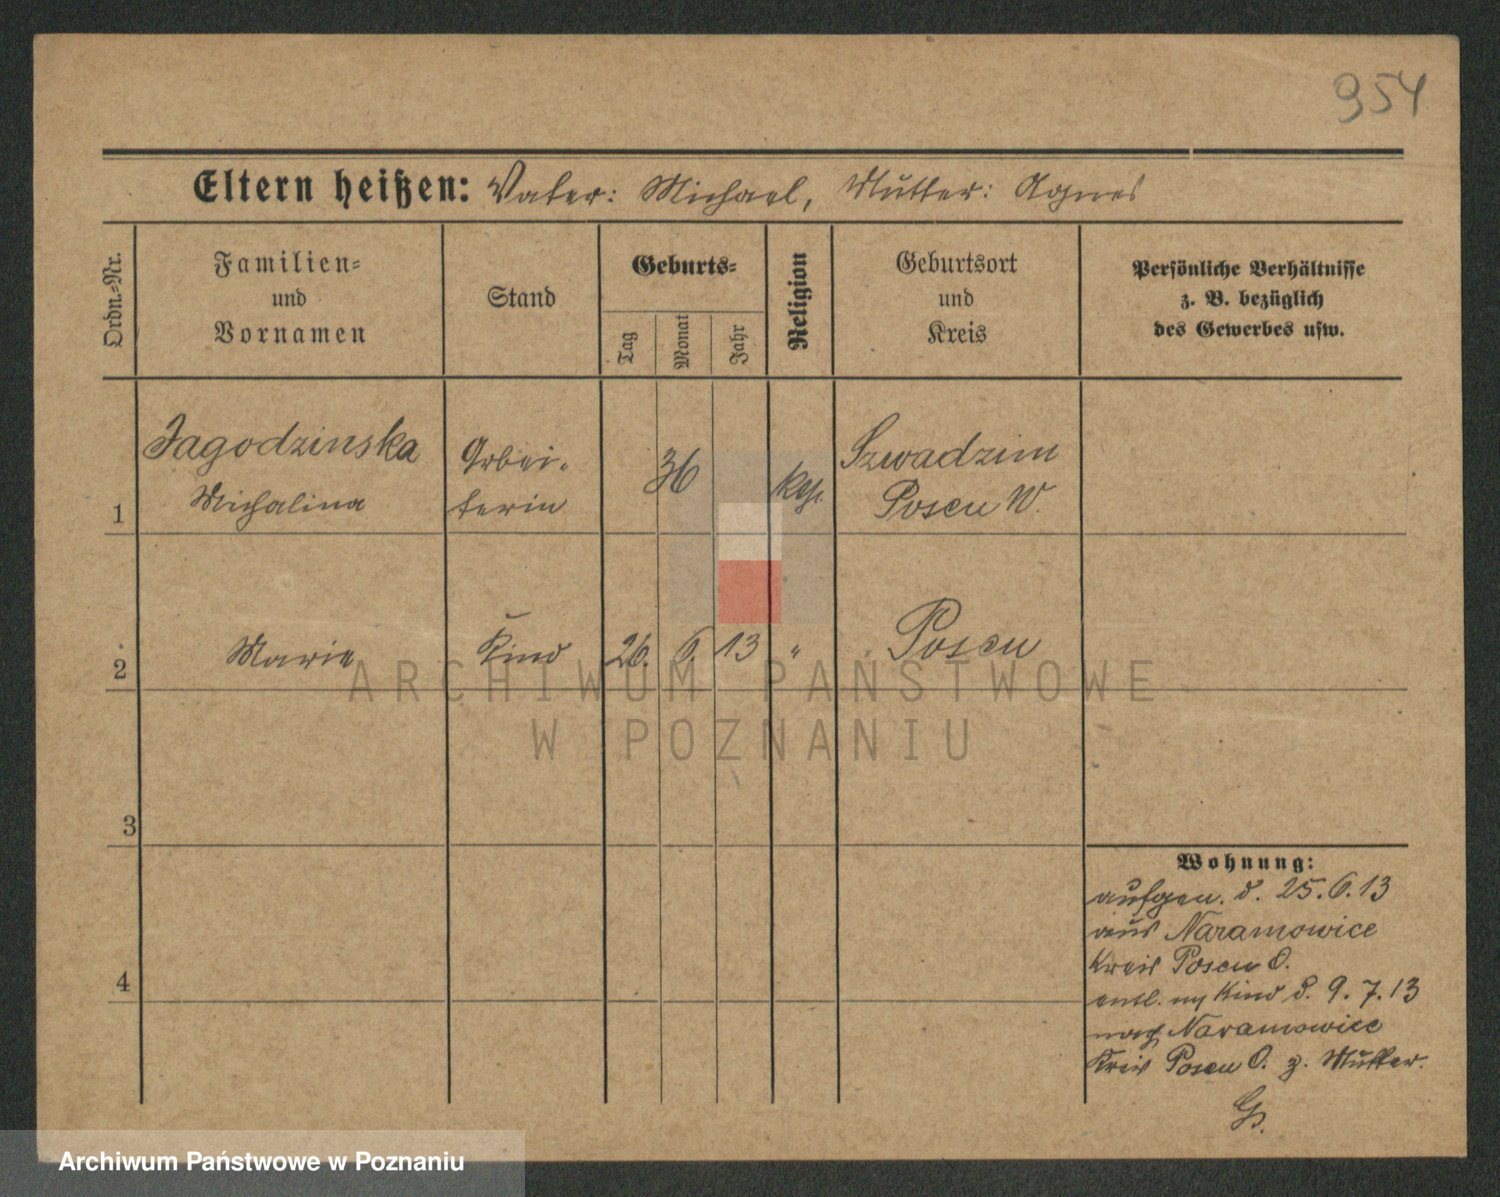 954
Eltern heißen: Vater: Michael, Mutter: Agnes
Ordn.-Nr.
Familien- und Vornamen
Stand
Geburts-
Tag
Monat
Jahr
Religion
Geburtsort und Kreis
Persönliche Verhältnisse z. B. bezüglich des Gewerbes usw.
1
Jagodzinska
Michalina
Arbei-
terin
36
kath.
Szwadzim
Posen W.
2
Marie
Kind
26. 6. 13
"
Posen
3
4
Wohnung:
aufgen. d. 25.6.13
aus Naramowice
Kreis Posen O.
entl. m Kind d. 9.7.13
nach Naramowice
Kreis Posen O. z. Mutter.
ARCHIWUM PAŃSTWOWE
W POZNANIU
Archiwum Państwowe w Poznaniu